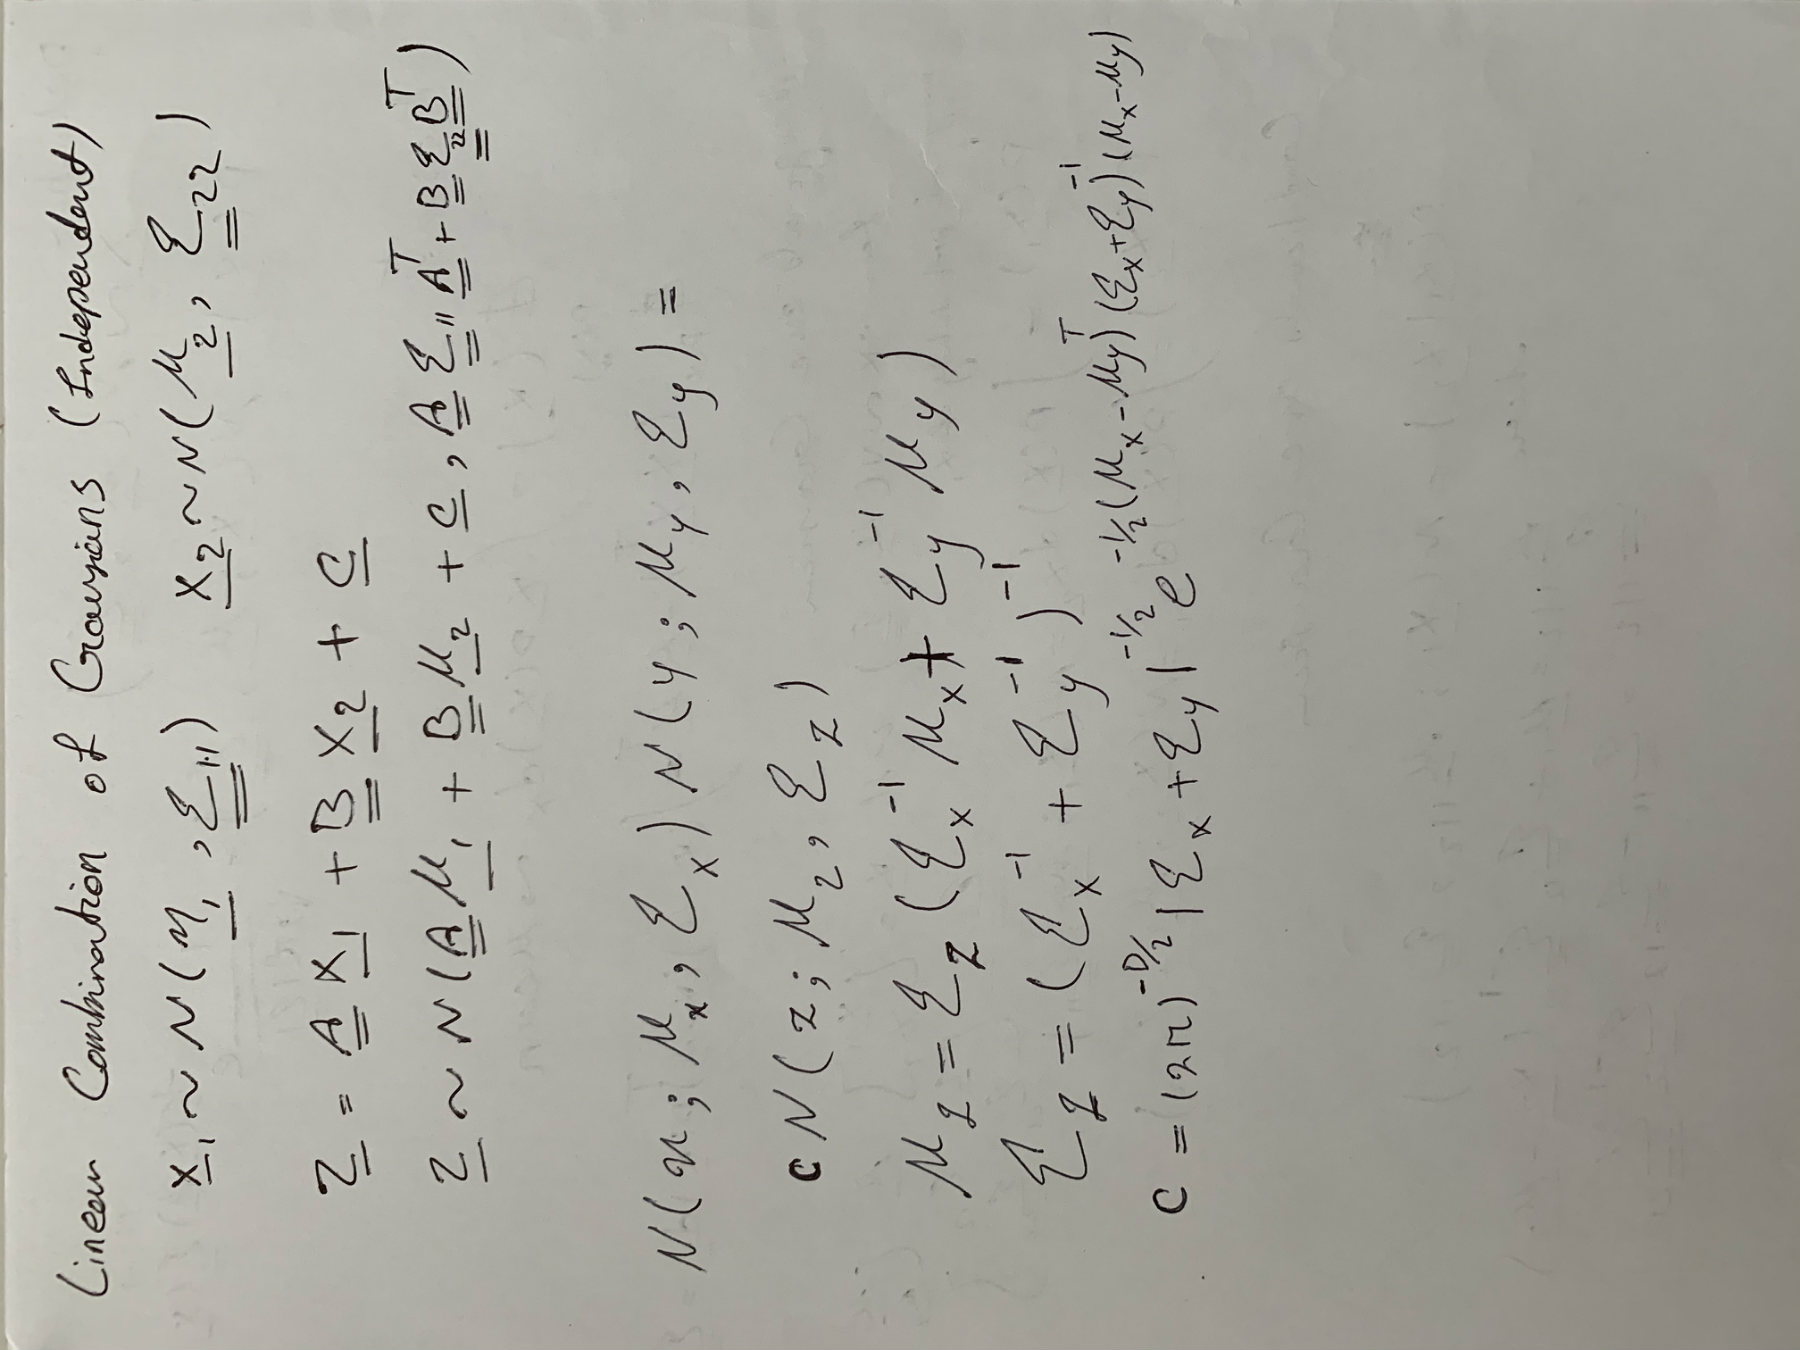 Linear Combination of Gaussians (Independent)
x₁ ~ N(μ₁, Σ₁₁) x₂ ~ N(μ₂, Σ₂₂)
z = A x₁ + B x₂ + c
z ~ N(A μ₁ + B μ₂ + c, A Σ₁₁ Aᵀ + B Σ₂₂ Bᵀ)
N(x; μₓ, Σₓ) N(y; μ_y, Σ_y) =
c N(z; μ_z, Σ_z)
μ_z = Σ_z (Σₓ⁻¹ μₓ + Σ_y⁻¹ μ_y)
Σ_z = (Σₓ⁻¹ + Σ_y⁻¹)⁻¹
c = (2π)^{-D/2} |Σₓ + Σ_y|^{-1/2} e^{-1/2 (μₓ - μ_y)ᵀ (Σₓ + Σ_y)⁻¹ (μₓ - μ_y)}